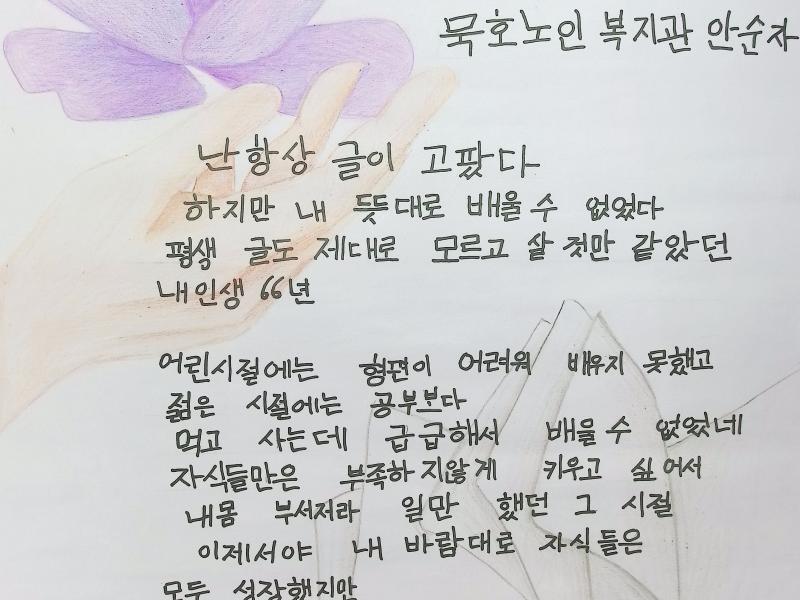 묵호노인 복지관 안순자
난 항상 글이 고팠다
하지만 내 뜻대로 배울 수 없었다
평생 글도 제대로 모르고 살 것만 같았던
내 인생 66년
어린시절에는 형편이 어려워 배우지 못했고
젊은 시절에는 공부보다
먹고 사는데 급급해서 배울 수 없었네
자식들만은 부족하지않게 키우고 싶어서
내몸 부서져라 일만 했던 그 시절
이제서야 내 바람대로 자식들은
모두 성장했지만